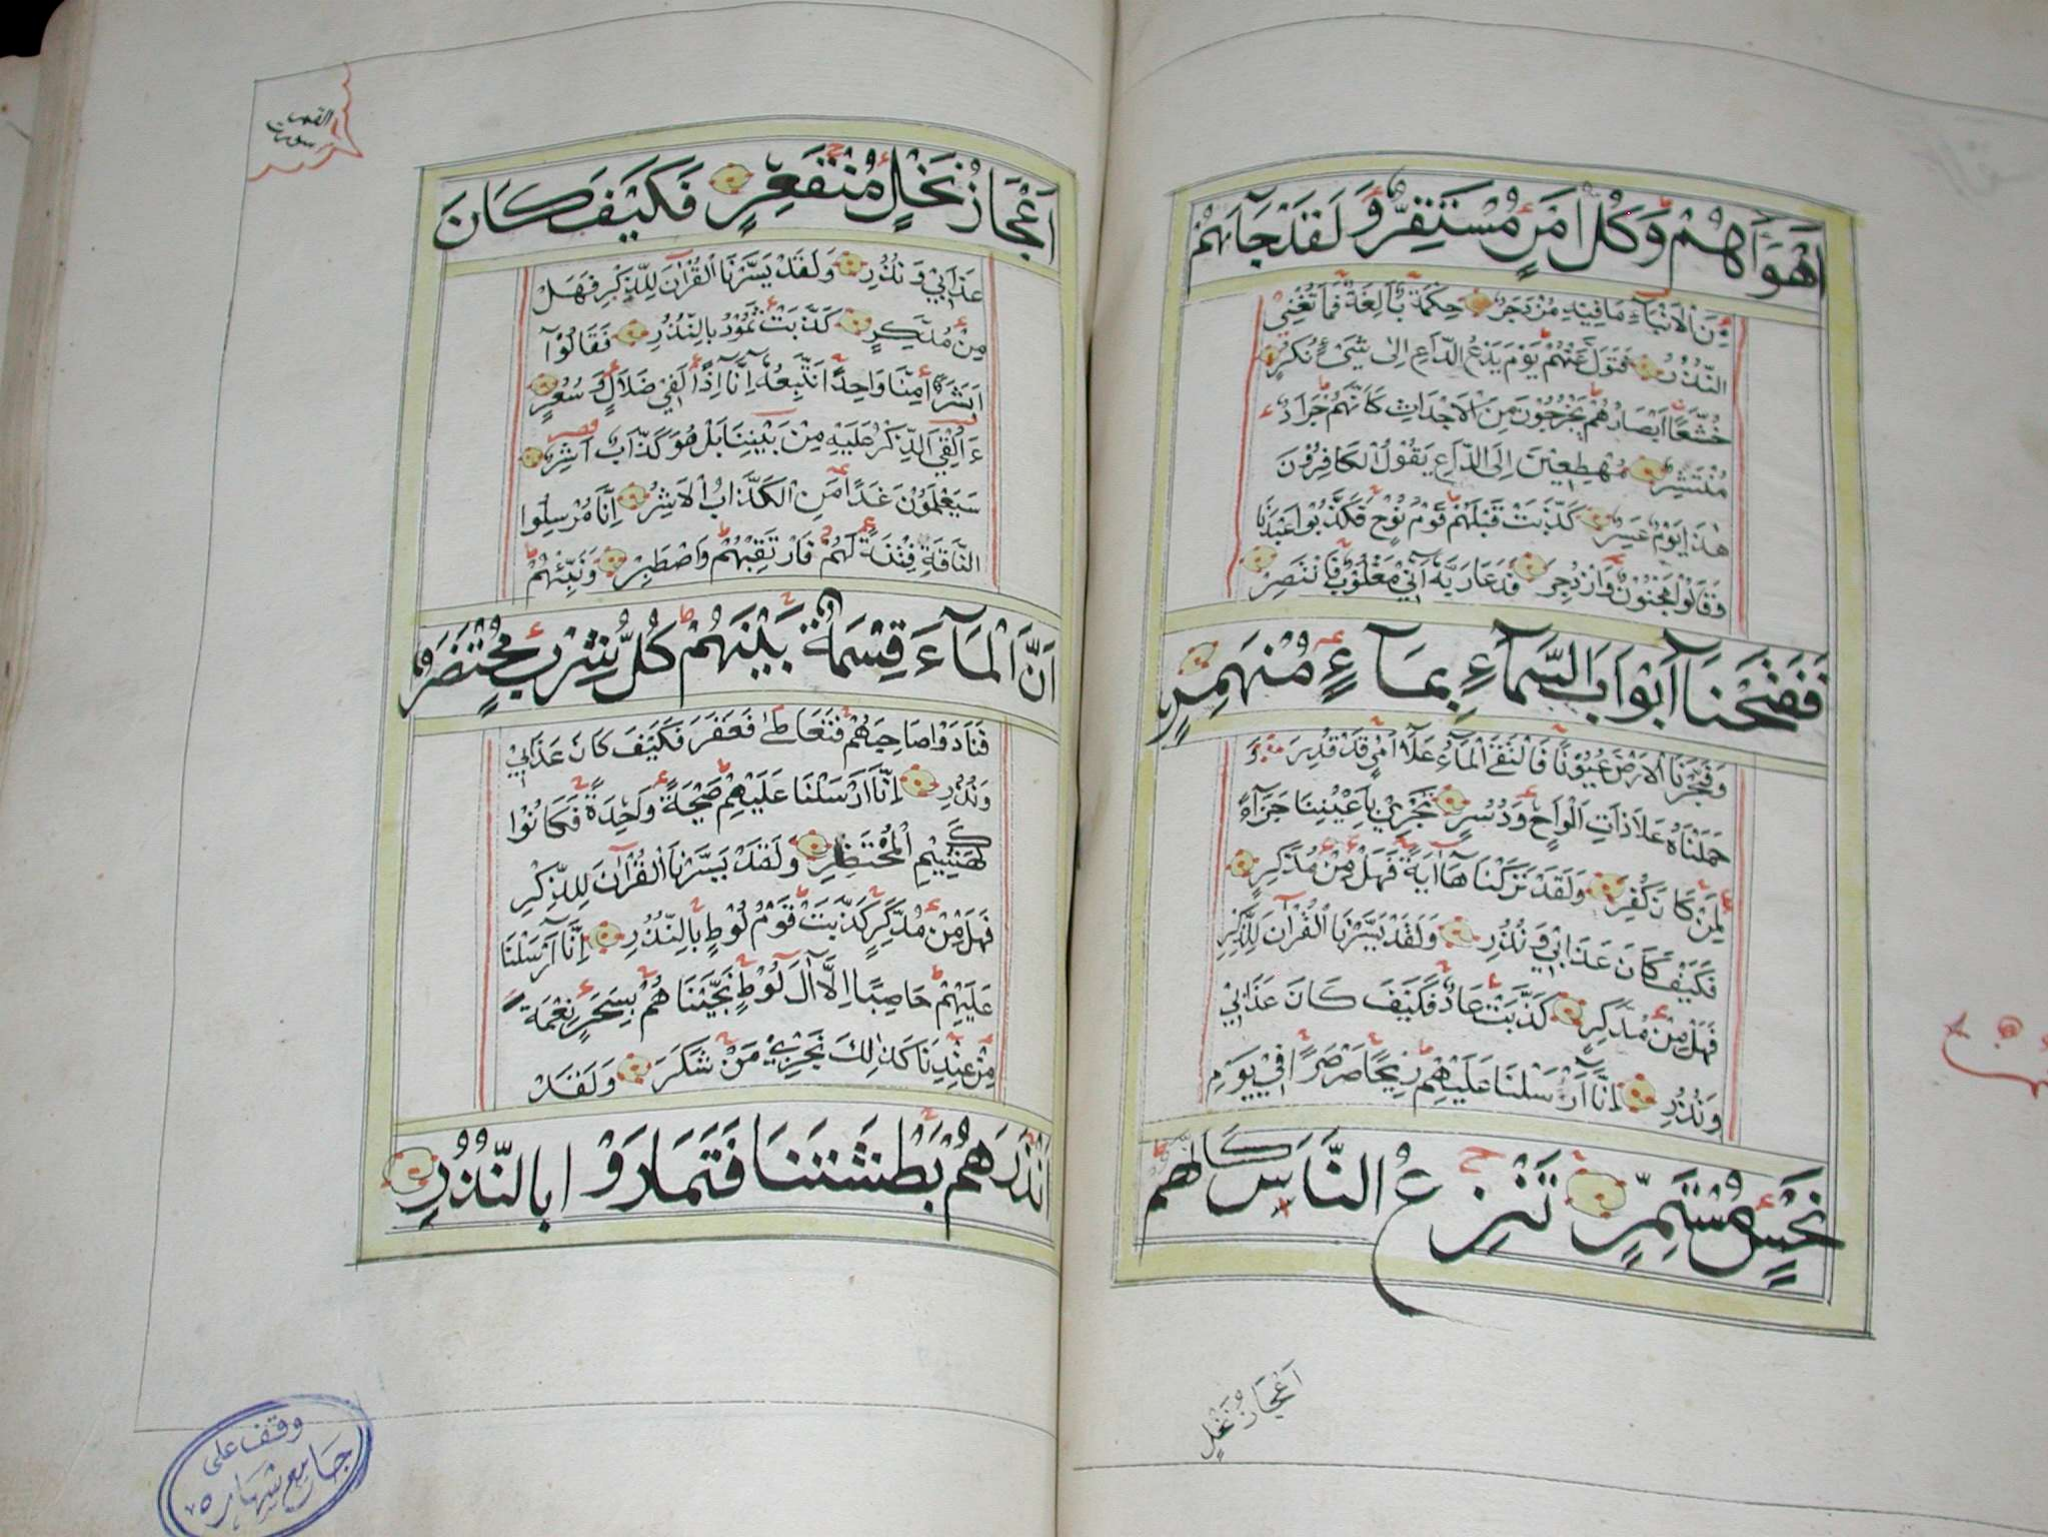 اَهْوَآءَهُمْ وَكُلُّ اَمْرٍ مُسْتَقِرٌّ وَلَقَدْ جَآءَهُمْ
مِنَ الْاَنْبَآءِ مَا فِيْهِ مُزْدَجَرٌ حِكْمَةٌ بَالِغَةٌ فَمَا تُغْنِي
النُّذُرُ فَتَوَلَّ عَنْهُمْ يَوْمَ يَدْعُ الدَّاعِ اِلٰى شَيْءٍ نُكُرٍ
خُشَّعًا اَبْصَارُهُمْ يَخْرُجُوْنَ مِنَ الْاَجْدَاثِ كَاَنَّهُمْ جَرَادٌ
مُنْتَشِرٌ مُهْطِعِيْنَ اِلَى الدَّاعِ يَقُوْلُ الْكَافِرُوْنَ
هٰذَا يَوْمٌ عَسِرٌ كَذَّبَتْ قَبْلَهُمْ قَوْمُ نُوْحٍ فَكَذَّبُوا عَبْدَنَا
وَقَالُوا مَجْنُوْنٌ وَازْدُجِرَ فَدَعَا رَبَّهٗ اَنِّيْ مَغْلُوْبٌ فَانْتَصِرْ
فَفَتَحْنَا اَبْوَابَ السَّمَآءِ بِمَآءٍ مُنْهَمِرٍ
وَفَجَّرْنَا الْاَرْضَ عُيُوْنًا فَالْتَقَى الْمَآءُ عَلَآ اَمْرٍ قَدْ قُدِرَ وَ
حَمَلْنَاهُ عَلَا ذَاتِ اَلْوَاحٍ وَدُسُرٍ تَجْرِيْ بِاَعْيُنِنَا جَزَآءً
لِمَنْ كَانَ كُفِرَ وَلَقَدْ تَرَكْنَاهَآ اٰيَةً فَهَلْ مِنْ مُدَّكِرٍ
فَكَيْفَ كَانَ عَذَابِيْ وَنُذُرِ وَلَقَدْ يَسَّرْنَا الْقُرْاٰنَ لِلذِّكْرِ
فَهَلْ مِنْ مُدَّكِرٍ كَذَّبَتْ عَادٌ فَكَيْفَ كَانَ عَذَابِيْ
وَنُذُرِ اِنَّآ اَرْسَلْنَا عَلَيْهِمْ رِيْحًا صَرْصَرًا فِيْ يَوْمِ
نَحْسٍ مُسْتَمِرٍّ تَنْزِعُ النَّاسَ كَاَنَّهُمْ
اَعْجَازُ نَخْلٍ
القمر
سورت
اَعْجَازُ نَخْلٍ مُنْقَعِرٍ فَكَيْفَ كَانَ
عَذَابِيْ وَنُذُرِ وَلَقَدْ يَسَّرْنَا الْقُرْاٰنَ لِلذِّكْرِ فَهَلْ
مِنْ مُدَّكِرٍ كَذَّبَتْ ثَمُوْدُ بِالنُّذُرِ فَقَالُوْآ
اَبَشَرًا مِنَّا وَاحِدًا نَتَّبِعُهٗ اِنَّا اِذًا لَفِيْ ضَلَالٍ وَسُعُرٍ
ءَاُلْقِيَ الذِّكْرُ عَلَيْهِ مِنْ بَيْنِنَا بَلْ هُوَ كَذَّابٌ اَشِرٌ
سَيَعْلَمُوْنَ غَدًا مَنِ الْكَذَّابُ الْاَشِرُ اِنَّا مُرْسِلُوا
النَّاقَةِ فِتْنَةً لَهُمْ فَارْتَقِبْهُمْ وَاصْطَبِرْ وَنَبِّئْهُمْ
اَنَّ الْمَآءَ قِسْمَةٌ بَيْنَهُمْ كُلُّ شِرْبٍ مُحْتَضَرٌ
فَنَادَوْا صَاحِبَهُمْ فَتَعَاطٰى فَعَقَرَ فَكَيْفَ كَانَ عَذَابِيْ
وَنُذُرِ اِنَّآ اَرْسَلْنَا عَلَيْهِمْ صَيْحَةً وَاحِدَةً فَكَانُوْا
كَهَشِيْمِ الْمُحْتَظِرِ وَلَقَدْ يَسَّرْنَا الْقُرْاٰنَ لِلذِّكْرِ
فَهَلْ مِنْ مُدَّكِرٍ كَذَّبَتْ قَوْمُ لُوْطٍ بِالنُّذُرِ اِنَّآ اَرْسَلْنَا
عَلَيْهِمْ حَاصِبًا اِلَّآ اٰلَ لُوْطٍ نَجَّيْنَاهُمْ بِسَحَرٍ نِعْمَةً
مِنْ عِنْدِنَا كَذٰلِكَ نَجْزِيْ مَنْ شَكَرَ وَلَقَدْ
اَنْذَرَهُمْ بَطْشَتَنَا فَتَمَارَوْا بِالنُّذُرِ
وقف على
جامع شهاره